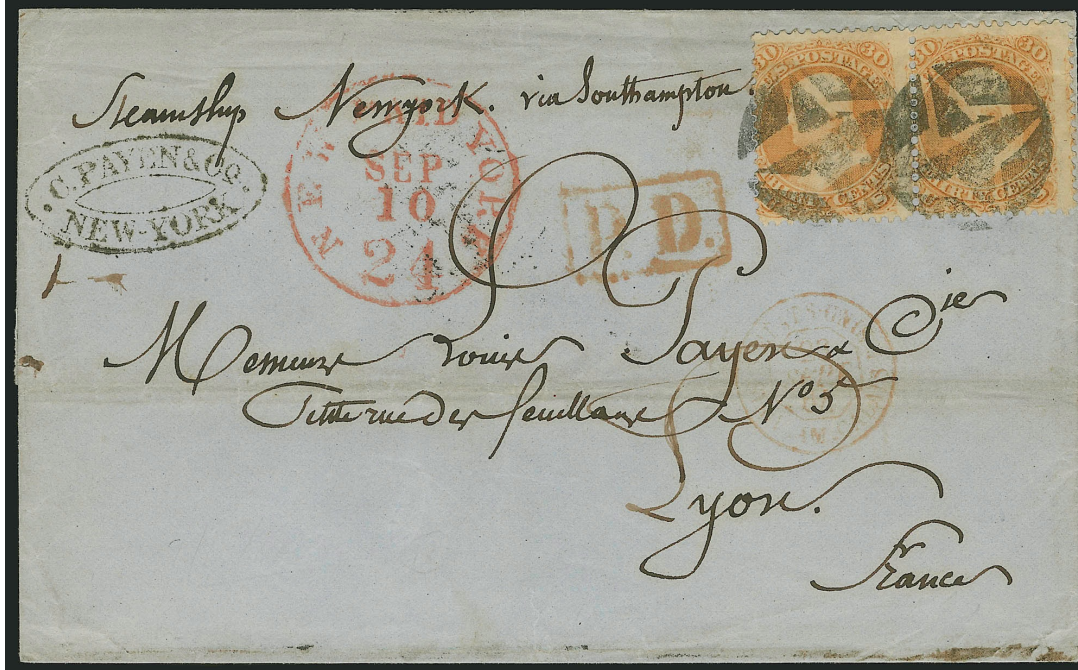 Steamship Newyork. via Southampton.
30 30
U.S. POSTAGE
30 30
U.S. POSTAGE
THIRTY CENTS
THIRTY CENTS
C. PAYEN & CO.
NEW-YORK
NEW PAID YORK
SEP
10
24
P.D.
Messieurs Louis Payen & Cie
Petite rue des feuillans No 5
Lyon.
France